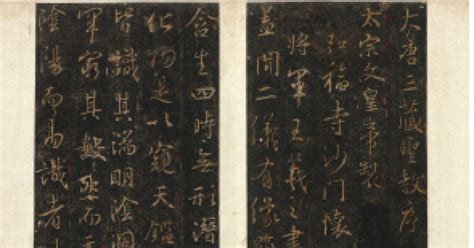 大唐三藏聖教序
太宗文皇帝製
弘福寺沙門懷
將軍王羲之書
蓋聞二儀有像
含生四時無形潛
化物是以窺天鑑
皆識其端明陰洞
罕窮其數然而
陰陽而易識者